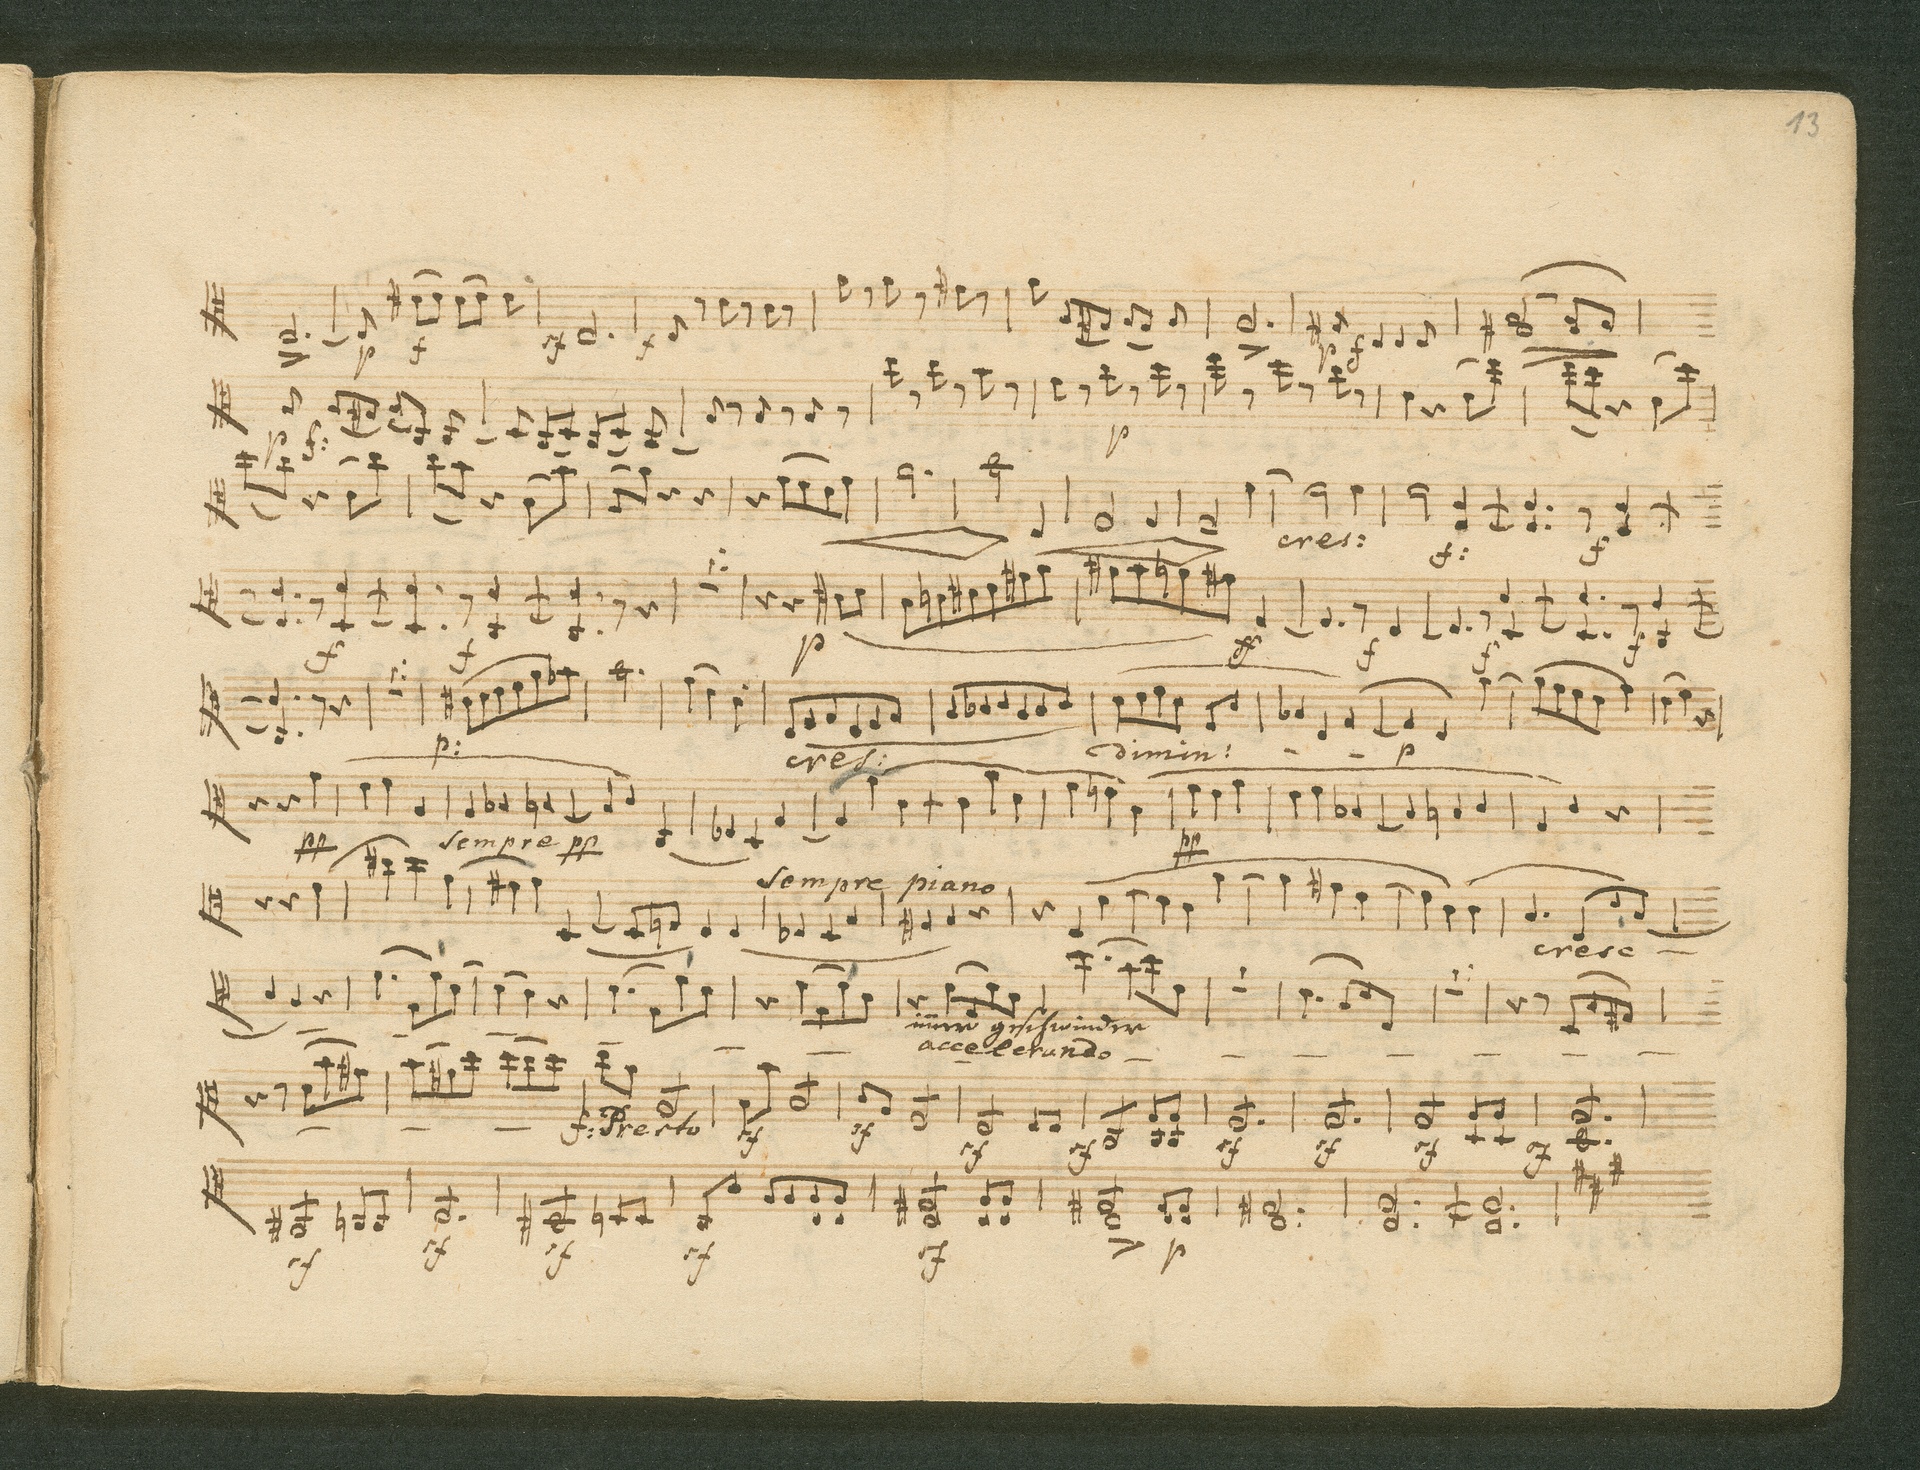 13
p f sf f p f
p f: p
cres: f: f
f f p f f f f
p: cres: dimin: - - p
pp sempre pp pp
sempre piano
cresc —
immer geschwinder
accelerando — — — — — — —
f: Presto sf sf sf sf sf sf sf sf
sf sf sf sf sf p